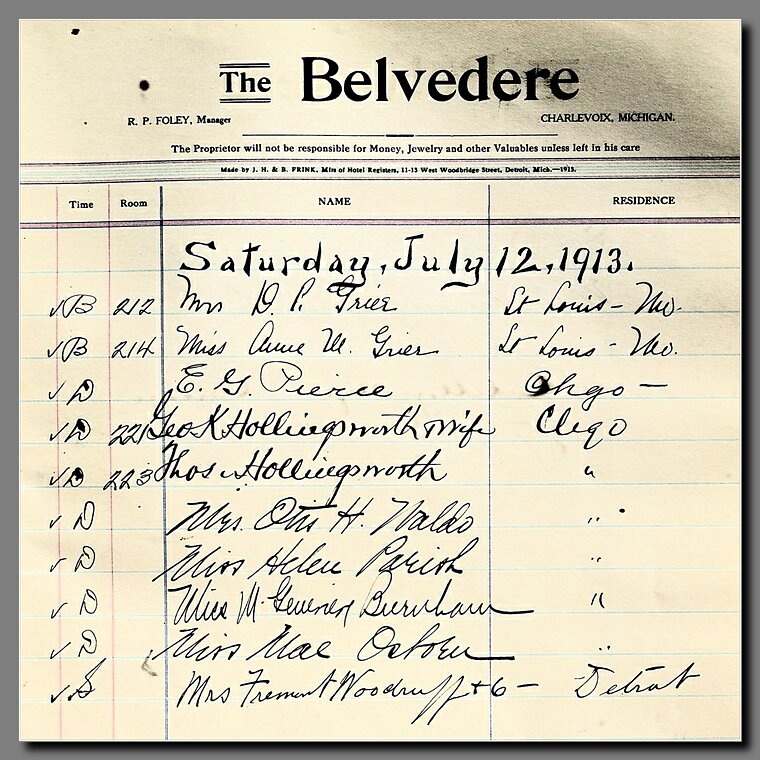 The Belvedere
R. P. FOLEY, Manager CHARLEVOIX, MICHIGAN.
The Proprietor will not be responsible for Money, Jewelry and other Valuables unless left in his care
Made by J. H. & B. FRINK, Mfrs of Hotel Registers, 11-13 West Woodbridge Street, Detroit, Mich.—1913.
Time Room NAME RESIDENCE
Saturday, July 12, 1913.
✓ B 212 Mrs D. P. Grier St Louis - Mo.
✓ B 214 Miss Anne M. Grier St Louis - Mo.
✓ D E. G. Pierce Chgo —
✓ D 221 Geo K Hollingsworth & Wife Chgo
✓ D 223 Thos Hollingsworth "
✓ D Mrs. Otis H. Waldo "
✓ D Miss Helen Parish "
✓ D Miss M. Burnham "
✓ D Miss Mae Osborn "
✓ S Mrs Fremont Woodruff + 6 — Detroit